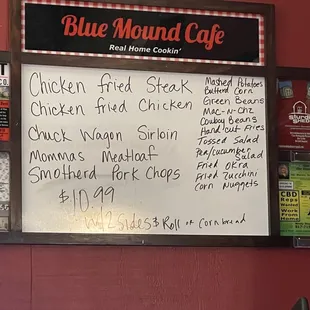 Blue Mound Cafe
Real Home Cookin'
Chicken fried Steak
Chicken fried Chicken
Chuck Wagon Sirloin
Mommas Meatloaf
Smotherd Pork Chops
$10.99
W/2 sides & Roll or Cornbread
Mashed Potatoes
Butterd Corn
Green Beans
Mac-n-Chz
Cowboy Beans
Hand/cut Fries
Tossed Salad
Pea/cucumber
Salad
Fried Okra
Fried Zucchini
Corn Nuggets
CBD
Reps
Wanted
Work
From
Home